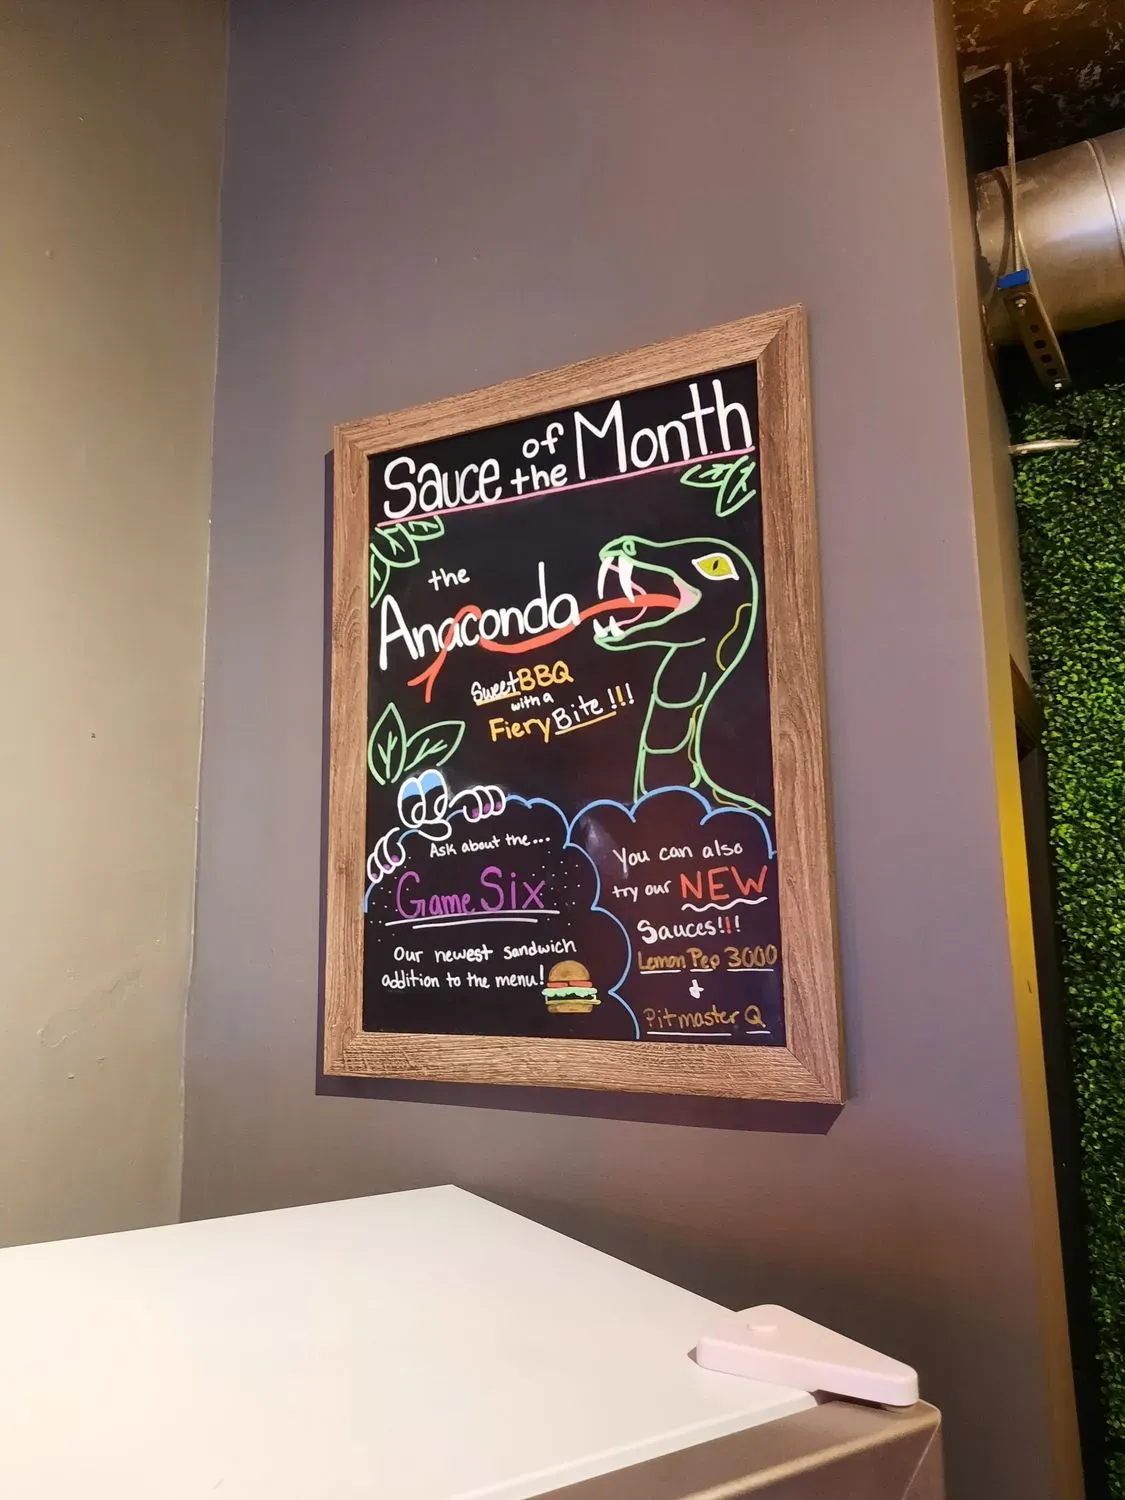 Sauce of the Month
the
Anaconda
Sweet BBQ
with a
Fiery Bite!!!
Ask about the...
Game Six
Our newest sandwich
addition to the menu!
You can also
try our NEW
Sauces!!!
Lemon Pep 3000
+
Pitmaster Q